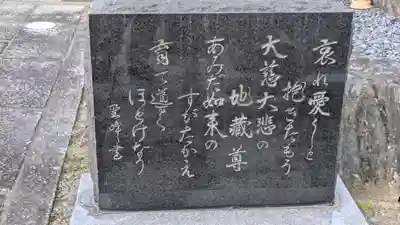 哀れ愛うしと
抱きたもう
大慈大悲の
地蔵尊
あみだ如来の
すがたかえ
育て道びく
ほとけなり
聖峰書